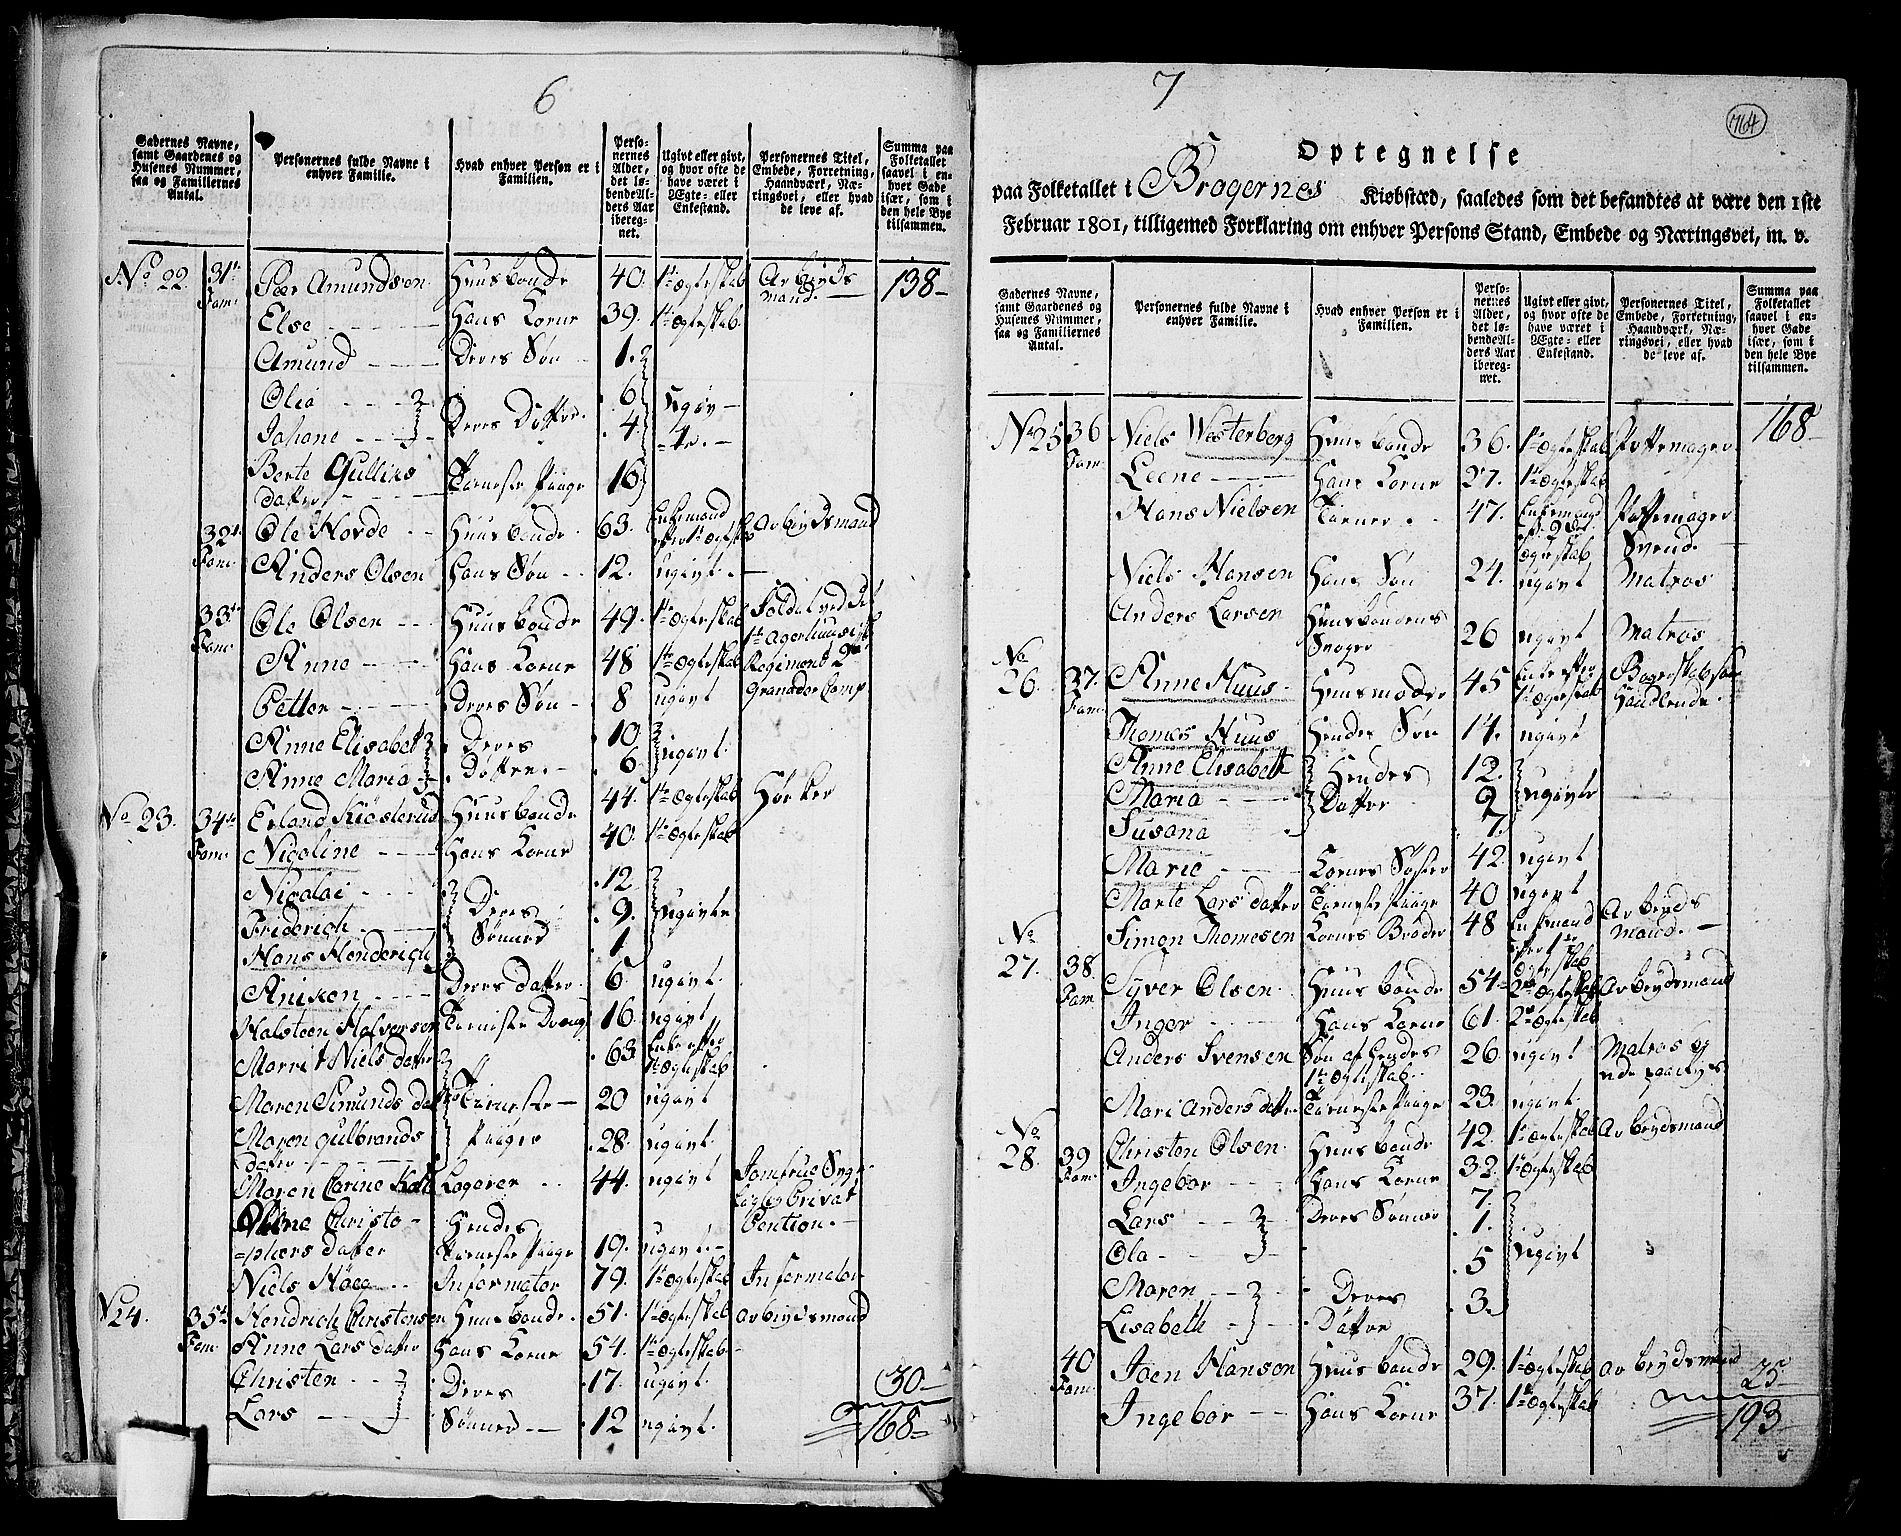 6
Gadernes Navne, samt Gaardenes og Husenes Nummer, saa og Familiernes Antal.
Personernes fulde Navne i enhver Familie.
Hvad enhver Person er i Familien.
Personernes Alder, det løbende Alders Aar iberegnet.
Ugivt eller givt, og hvor ofte de have været i Ægte- eller Enkestand.
Personernes Titel, Embede, Forretning, Haandværk, Næringsvei, eller hvad de leve af.
Summa paa Folketallet saavel i enhver Gade især, som i den hele Bye tilsammen.
No 22. 31te Fam: Pær Amundsen Huusbonde 40. 1te Ægteskab Arbeyds mand. 138
Else Hans Kone 39. 1te Ægteskab.
Amund Deres Søn 1.
Olia 6
Johane Deres Døttre 4. ugivte
Berte Gullies datter Tieneste Piige 16
32te Fam: Ole Horde Huusbonde 63. Enkemand efter 1te Ægteskab Arbeydsmand
Anders Olsen Hans Søn 12. ugivt.
33te Fam: Ole Olsen Huusbonde 49. 1te Ægteskab Soldat ved Det
Anne Hans Kone 48 1te Ægteskab Regiment 2det
Petter Deres Søn 8 ugivt Granader Comp
Anne Elisabet Deres 10
Anne Maria Døttre 6 ugivt.
No 23. 34te Fam: Erland Kiøsterud Huusbonde 44. 1te Ægteskab Høcker
Nicoline Hans Kone 40. 1te Ægteskab
Nicolai 12.
Friderich Deres 9. ugivte
Hans Henderich Sønner 1
Aniken Deres datter 6 ugivt.
Halsteen Halvorsen Tieneste Dreng 16 ugivt
Marrit Niels datter 63. Enke efter 1te Ægteskab
Maren Simunds dat Tieneste 20 ugivt
Maren gulbrands datter Piiger 28. ugivt.
Maren Carine Logerer 44. ugivt Jomfrue
Privat Pention.
Christophers datter Hendes Tieneste Piige 19. ugivt.
Niels Høeg Informator 79. 1te Ægteskab Informator
No 24. 35te Fam: Hendrich Christensen Huusbonde 51. 1te Ægteskab Arbeydsmand
Anne Lars datter Hans Kone 54. 1te Ægteskab
Christen Deres 17. ugivt.
Lars Sønner 12 ugivt.
30
168
7
764
Optegnelse
paa Folketallet i Bragernes Kiøbstæd, saaledes som det befandtes at være den 1ste
Februar 1801, tilligemed Forklaring om enhver Persons Stand, Embede og Næringsvei, m. v.
Gadernes Navne, samt Gaardenes og Husenes Nummer, saa og Familiernes Antal.
Personernes fulde Navne i enhver Familie.
Hvad enhver Person er i Familien.
Personernes Alder, det løbende Alders Aar iberegnet.
Ugivt eller givt, og hvor ofte de have været i Ægte- eller Enkestand.
Personernes Titel, Embede, Forretning, Haandværk, Næringsvei, eller hvad de leve af.
Summa paa Folketallet saavel i enhver Gade især, som i den hele Bye tilsammen.
No 25 36 Fam: Niels Westerberg Huusbonde 36. 1te Ægteskab Pottemager 168
Leene Hans Kone 27. 1te Ægteskab
Hans Nielsen Tiener 47. Enkemand Ægteskab Pottemager Svend
Niels Hansen Hans Søn 24. ugivt Matros
Anders Larsen Huusbondens Svoger 26 ugivt Matros
No 26. 37. Fam: Anne Huus Huusmoder 45 Enke efter 1te Ægteskab Handlende
Thomes Huus Hendes Søn 14. ugivt
Anne Elisabeth Hendes 12.
Maria Døttre 9 ugivte
Susana 7.
Marie Konens Søster 42. ugivt
Marte Lars datter Tieneste Piige 40 ugivt
Simon Thomesen Konens Broder 48 Enkemand efter 1te Ægteskab Arbeyds mand.
No 27. 38. Fam: Syver Olsen Huusbonde 54 2det Ægteskab Arbeydsmand
Inger Hans Kone 61. 2det Ægteskab
Anders Svensen Søn af Hendes 1te Ægteskab 26 ugivt Matros og
Mari Anders datter Tieneste Piige 23. ugivt.
No 28. 39 Fam: Christen Olsen Huusbonde 42. 1te Ægteskab Arbeydsmand
Ingebor Hans Kone 32. 1te Ægteskab
Lars Deres Sønner 7.
Ola 1.
Maren Deres 5 ugivt
Lisabeth Døttre 3.
40 Fam: Joen Hansen Huusbonde 29. 1te Ægteskab Arbeydsmand
Ingebor Hans Kone 37. 1te Ægteskab
25
193